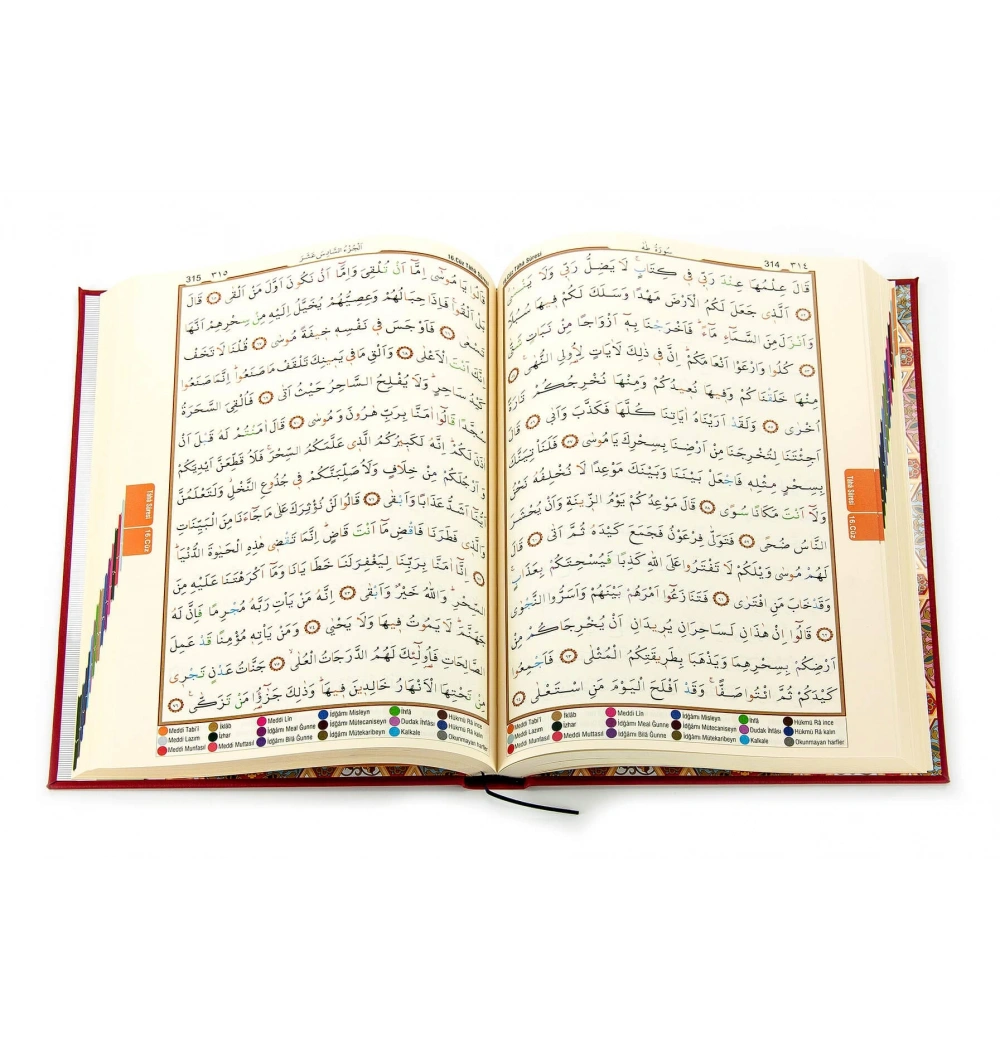 314 ٣١٤
سُورَةُ طٰهٰ
16.Cüz Tâhâ Sûresi
قَالَ عِلْمُهَا عِنْدَ رَبّ۪ي ف۪ي كِتَابٍۚ لَا يَضِلُّ رَبّ۪ي وَلَا يَنْسٰىۘ
﴿٥٢﴾ اَلَّذ۪ي جَعَلَ لَكُمُ الْاَرْضَ مَهْدًا وَسَلَكَ لَكُمْ ف۪يهَا سُبُلًا
وَاَنْزَلَ مِنَ السَّمَٓاءِ مَٓاءًۜ فَاَخْرَجْنَا بِه۪ٓ اَزْوَاجًا مِنْ نَبَاتٍ شَتّٰى
﴿٥٣﴾ كُلُوا وَارْعَوْا اَنْعَامَكُمْۜ اِنَّ ف۪ي ذٰلِكَ لَاٰيَاتٍ لِاُو۬لِي النُّهٰى۟ ﴿٥٤﴾
مِنْهَا خَلَقْنَاكُمْ وَف۪يهَا نُع۪يدُكُمْ وَمِنْهَا نُخْرِجُكُمْ تَارَةً
اُخْرٰى ﴿٥٥﴾ وَلَقَدْ اَرَيْنَاهُ اٰيَاتِنَا كُلَّهَا فَكَذَّبَ وَاَبٰى ﴿٥٦﴾ قَالَ
اَجِئْتَنَا لِتُخْرِجَنَا مِنْ اَرْضِنَا بِسِحْرِكَ يَا مُوسٰى ﴿٥٧﴾ فَلَنَأْتِيَنَّكَ
بِسِحْرٍ مِثْلِه۪ فَاجْعَلْ بَيْنَنَا وَبَيْنَكَ مَوْعِدًا لَا نُخْلِفُهُ نَحْنُ
وَلَٓا اَنْتَ مَكَانًا سُوًى ﴿٥٨﴾ قَالَ مَوْعِدُكُمْ يَوْمُ الزّ۪ينَةِ وَاَنْ يُحْشَرَ
النَّاسُ ضُحًى ﴿٥٩﴾ فَتَوَلّٰى فِرْعَوْنُ فَجَمَعَ كَيْدَهُ ثُمَّ اَتٰى ﴿٦٠﴾ قَالَ
لَهُمْ مُوسٰى وَيْلَكُمْ لَا تَفْتَرُوا عَلَى اللّٰهِ كَذِبًا فَيُسْحِتَكُمْ بِعَذَابٍۚ
وَقَدْ خَابَ مَنِ افْتَرٰى ﴿٦١﴾ فَتَنَازَعُٓوا اَمْرَهُمْ بَيْنَهُمْ وَاَسَرُّوا النَّجْوٰى
﴿٦٢﴾ قَالُٓوا اِنْ هٰذَانِ لَسَاحِرَانِ يُر۪يدَانِ اَنْ يُخْرِجَاكُمْ مِنْ
اَرْضِكُمْ بِسِحْرِهِمَا وَيَذْهَبَا بِطَر۪يقَتِكُمُ الْمُثْلٰى ﴿٦٣﴾ فَاَجْمِعُوا
كَيْدَكُمْ ثُمَّ ائْتُوا صَفًّاۚ وَقَدْ اَفْلَحَ الْيَوْمَ مَنِ اسْتَعْلٰى ﴿٦٤﴾
Meddi Tabi'î İklâb Meddi Lîn İdğâmı Misleyn İhfâ Hükmü Râ ince
Meddi Lazım İzhar İdğâmı Meal Ğunne İdğâmı Mütecaniseyn Dudak İhfâsı Hükmü Râ kalın
Meddi Munfasıl Meddi Muttasıl İdğâmı Bilâ Ğunne İdğâmı Mütekaribeyn Kalkale Okunmayan harfler
Tâhâ Sûresi
16.Cüz
315 ٣١٥
اَلْجُزْءُ السَّادِسَ عَشَرَ
16.Cüz Tâhâ Sûresi
قَالُوا يَا مُوسٰٓى اِمَّٓا اَنْ تُلْقِيَ وَاِمَّٓا اَنْ نَكُونَ اَوَّلَ مَنْ اَلْقٰى ﴿٦٥﴾ قَالَ
بَلْ اَلْقُواۚ فَاِذَا حِبَالُهُمْ وَعِصِيُّهُمْ يُخَيَّلُ اِلَيْهِ مِنْ سِحْرِهِمْ اَنَّهَا
تَسْعٰى ﴿٦٦﴾ فَاَوْجَسَ ف۪ي نَفْسِه۪ خ۪يفَةً مُوسٰى ﴿٦٧﴾ قُلْنَا لَا تَخَفْ
اِنَّكَ اَنْتَ الْاَعْلٰى ﴿٦٨﴾ وَاَلْقِ مَا ف۪ي يَم۪ينِكَ تَلْقَفْ مَا صَنَعُواۜ اِنَّمَا صَنَعُوا
كَيْدُ سَاحِرٍۜ وَلَا يُفْلِحُ السَّاحِرُ حَيْثُ اَتٰى ﴿٦٩﴾ فَاُلْقِيَ السَّحَرَةُ
سُجَّدًا قَالُٓوا اٰمَنَّا بِرَبِّ هٰرُونَ وَمُوسٰى ﴿٧٠﴾ قَالَ اٰمَنْتُمْ لَهُ قَبْلَ اَنْ
اٰذَنَ لَكُمْۜ اِنَّهُ لَكَب۪يرُكُمُ الَّذ۪ي عَلَّمَكُمُ السِّحْرَۚ فَلَاُقَطِّعَنَّ اَيْدِيَكُمْ
وَاَرْجُلَكُمْ مِنْ خِلَافٍ وَلَاُصَلِّبَنَّكُمْ ف۪ي جُذُوعِ النَّخْلِۘ وَلَتَعْلَمُنَّ
اَيُّنَٓا اَشَدُّ عَذَابًا وَاَبْقٰى ﴿٧١﴾ قَالُوا لَنْ نُؤْثِرَكَ عَلٰى مَا جَٓاءَنَا مِنَ الْبَيِّنَاتِ
وَالَّذ۪ي فَطَرَنَا فَاقْضِ مَٓا اَنْتَ قَاضٍۜ اِنَّمَا تَقْض۪ي هٰذِهِ الْحَيٰوةَ الدُّنْيَاۜ
﴿٧٢﴾ اِنَّٓا اٰمَنَّا بِرَبِّنَا لِيَغْفِرَ لَنَا خَطَايَانَا وَمَٓا اَكْرَهْتَنَا عَلَيْهِ مِنَ
السِّحْرِۜ وَاللّٰهُ خَيْرٌ وَاَبْقٰى ﴿٧٣﴾ اِنَّهُ مَنْ يَأْتِ رَبَّهُ مُجْرِمًا فَاِنَّ لَهُ
جَهَنَّمَۜ لَا يَمُوتُ ف۪يهَا وَلَا يَحْيٰى ﴿٧٤﴾ وَمَنْ يَأْتِه۪ مُؤْمِنًا قَدْ عَمِلَ
الصَّالِحَاتِ فَاُو۬لٰٓئِكَ لَهُمُ الدَّرَجَاتُ الْعُلٰىۙ ﴿٧٥﴾ جَنَّاتُ عَدْنٍ تَجْر۪ي
مِنْ تَحْتِهَا الْاَنْهَارُ خَالِد۪ينَ ف۪يهَاۜ وَذٰلِكَ جَزٰٓؤُ۬ا مَنْ تَزَكّٰى۟ ﴿٧٦﴾
Meddi Tabi'î İklâb Meddi Lîn İdğâmı Misleyn İhfâ Hükmü Râ ince
Meddi Lazım İzhar İdğâmı Meal Ğunne İdğâmı Mütecaniseyn Dudak İhfâsı Hükmü Râ kalın
Meddi Munfasıl Meddi Muttasıl İdğâmı Bilâ Ğunne İdğâmı Mütekaribeyn Kalkale Okunmayan harfler
Tâhâ Sûresi
16.Cüz